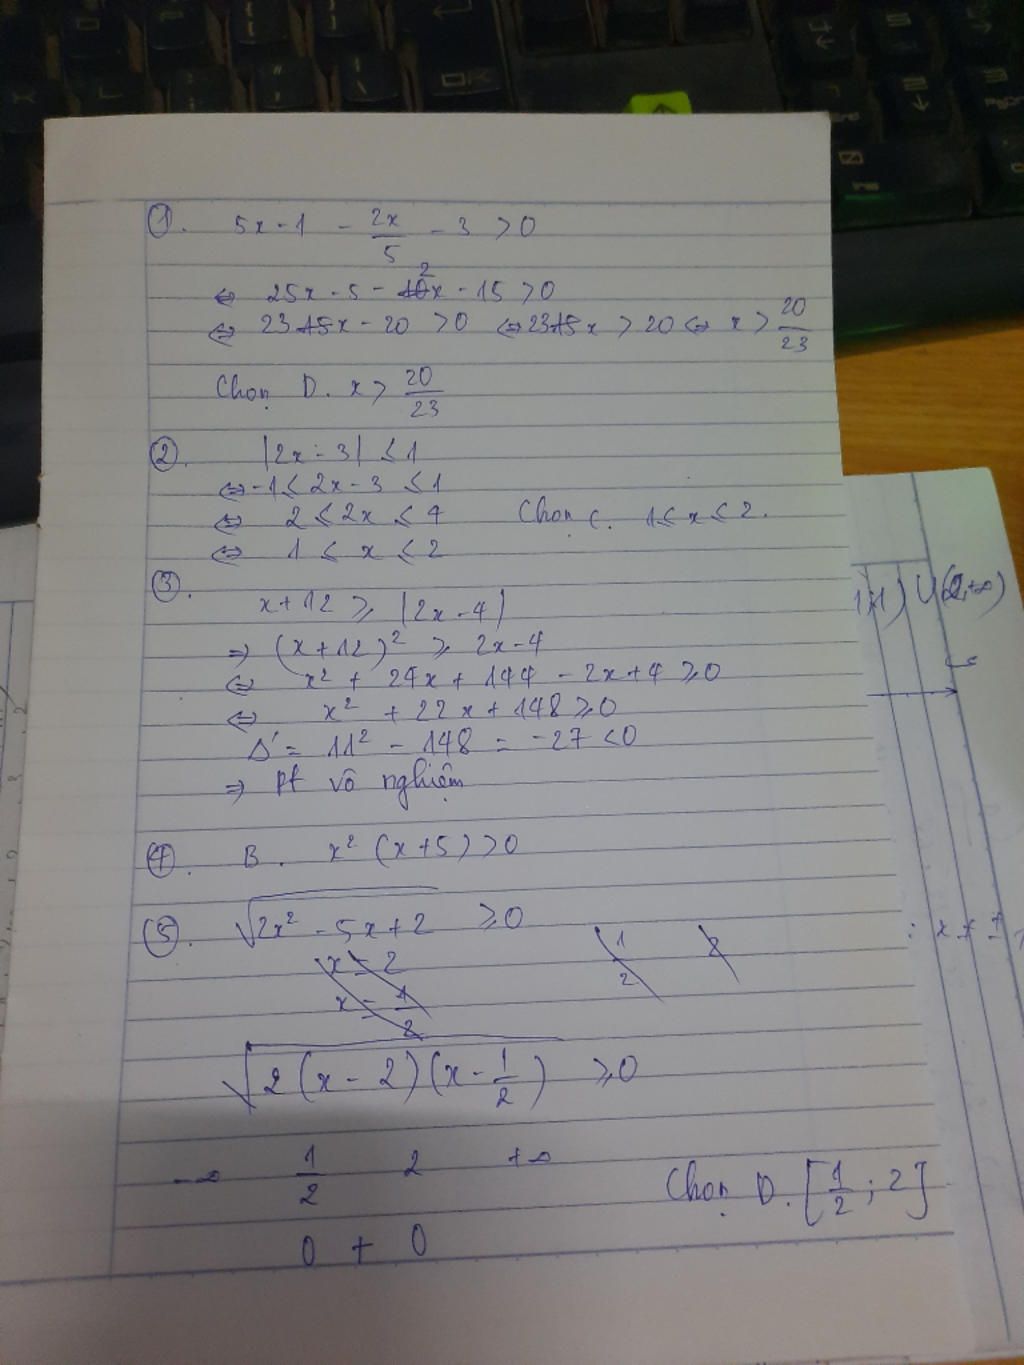 ①. 5x - 1 - 2x/5 - 3 > 0
⇔ 25x - 5 - 2x - 15 > 0
⇔ 23x - 20 > 0 ⇔ 23x > 20 ⇔ x > 20/23
Chọn D. x > 20/23
②. |2x - 3| ≤ 1
⇔ -1 ≤ 2x - 3 ≤ 1
⇔ 2 ≤ 2x ≤ 4 Chọn C. 1 ≤ x ≤ 2.
⇔ 1 ≤ x ≤ 2
③.
x + 12 ≥ |2x - 4|
⇒ (x + 12)² ≥ 2x - 4
⇔ x² + 24x + 144 - 2x + 4 ≥ 0
⇔ x² + 22x + 148 ≥ 0
Δ' = 11² - 148 = -27 < 0
⇒ Pt vô nghiệm
④. B. x² (x + 5) > 0
⑤. √(2x² - 5x + 2) ≥ 0
x = 2 1/2 2
x = 1/2
√(2(x - 2)(x - 1/2)) ≥ 0
-∞ 1/2 2 +∞
Chọn D. [1/2 ; 2]
0 + 0